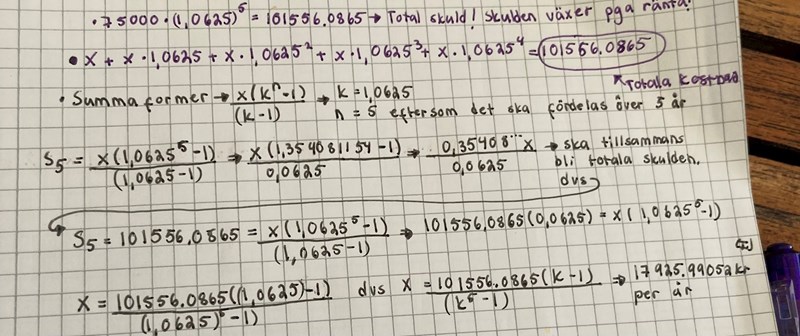 • 75000 · (1,0625)⁵ = 101556.0865 → Total skuld! skulden växer pga ränta!
• x + x · 1,0625 + x · 1,0625² + x · 1,0625³ + x · 1,0625⁴ = 101556.0865
↖ Totala kostnad
• Summa formel → x(kⁿ-1) / (k-1) → k = 1,0625
n = 5 eftersom det ska fördelas över 5 år
S₅ = x(1,0625⁵-1) / (1,0625-1) → x(1,354081154-1) / 0,0625 → 0,35408... x / 0,0625 → ska tillsammans
bli totala skulden.
dvs
S₅ = 101556.0865 = x(1,0625⁵-1) / (1,0625-1) → 101556.0865(0,0625) = x(1,0625⁵-1)
x = 101556.0865((1,0625)-1) / (1,0625)⁵-1) dvs x = 101556.0865(k-1) / (k⁵-1) → 17925.99052 kr
per år